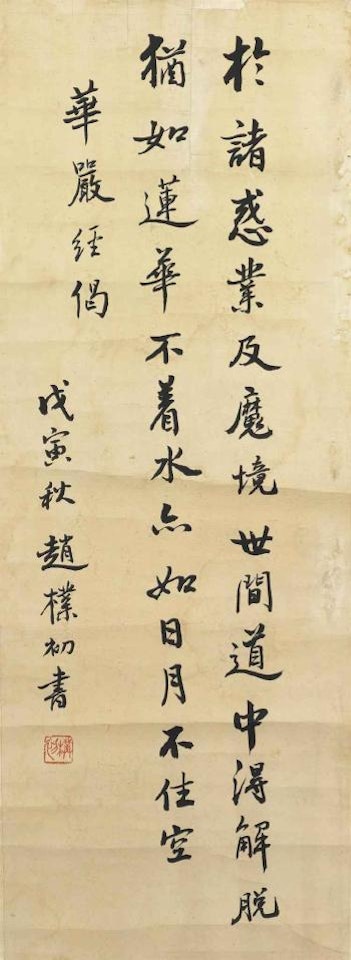 於諸惑業及魔境世間道中得解脱
猶如蓮華不着水亦如日月不住空
華嚴経偈
戊寅秋趙樸初書
樸初